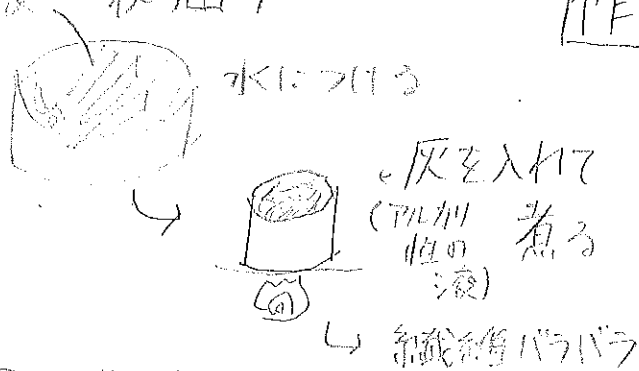 水につける
・灰を入れて
(アルカリ性の液)
煮る
↳ 繊維バラバラ